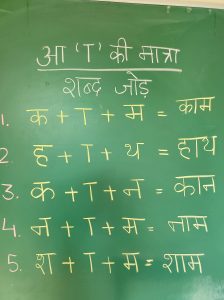 आ 'ा' की मात्रा
शब्द जोड़
1. क + ा + म = काम
2 ह + ा + थ = हाथ
3. क + ा + न = कान
4. न + ा + म = नाम
5. श + ा + म = शाम